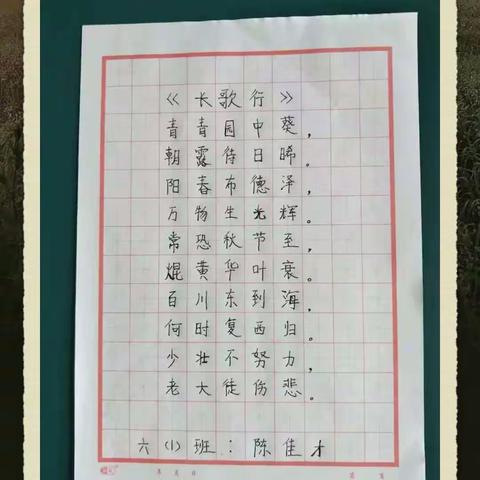 《长歌行》
青青园中葵，
朝露待日晞。
阳春布德泽，
万物生光辉。
常恐秋节至，
焜黄华叶衰。
百川东到海，
何时复西归。
少壮不努力，
老大徒伤悲。
六(1)班：陈佳才